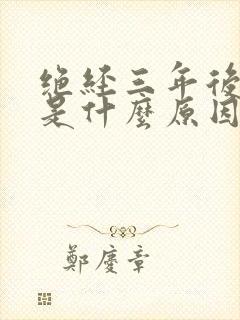 绝經三年後
是什麼原因
鄭慶章